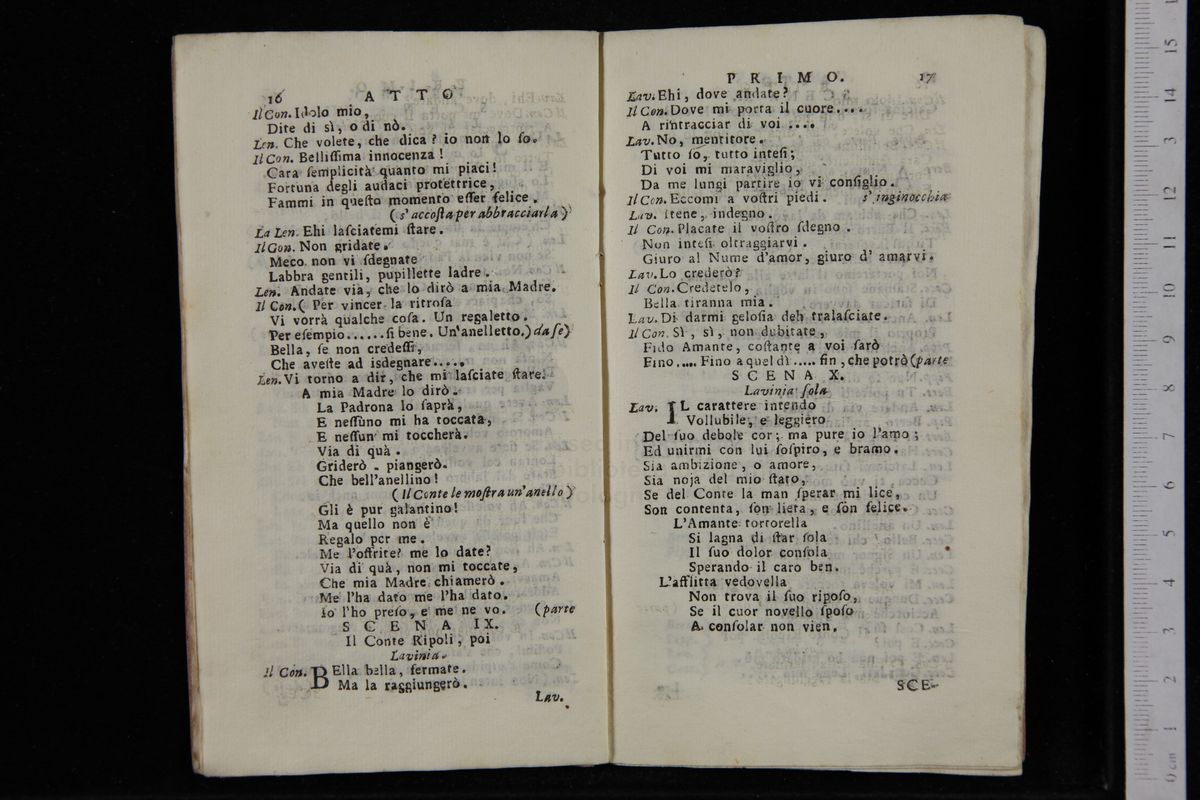 16 A T T O
Il Con. Idolo mio,
Dite di sì, o di nò.
Len. Che volete, che dica? io non lo ſo.
Il Con. Belliſſima innocenza!
Cara ſemplicità quanto mi piaci!
Fortuna degli audaci protettrice,
Fammi in queſto momento eſſer felice.
(s' accoſta per abbracciarla)
La Len. Ehi laſciatemi ſtare.
Il Con. Non gridate.
Meco non vi ſdegnate
Labbra gentili, pupillette ladre.
Len. Andate via, che lo dirò a mia Madre.
Il Con. ( Per vincer la ritroſa
Vi vorrà qualche coſa. Un regaletto.
Per eſempio......ſi bene. Un'anelletto.) da ſe)
Bella, ſe non credeſſi,
Che aveſte ad isdegnare.....
Len. Vi torno a dir, che mi laſciate ſtare.
A mia Madre lo dirò.
La Padrona lo ſaprà,
E neſſuno mi ha toccata,
E neſſun mi toccherà.
Via di quà.
Griderò. piangerò.
Che bell'anellino!
( Il Conte le moſtra un'anello )
Gli è pur galantino!
Ma quello non è
Regalo per me.
Me l'offrite? me lo date?
Via di quà, non mi toccate,
Che mia Madre chiamerò.
Me l'ha dato me l'ha dato.
Io l'ho preſo, e me ne vo. (parte
S C E N A IX.
Il Conte Ripoli, poi
Lavinia.
Il Con. BElla bella, fermate.
Ma la raggiungerò.
Lav.
P R I M O. 17
Lav. Ehi, dove andate?
Il Con. Dove mi porta il cuore....
A rintracciar di voi ....
Lav. No, mentitore.
Tutto ſo, tutto inteſi;
Di voi mi maraviglio,
Da me lungi partire io vi conſiglio.
Il Con. Eccomi a voſtri piedi. s' inginocchia
Lav. Itene, indegno.
Il Con. Placate il voſtro ſdegno.
Non inteſi oltraggiarvi.
Giuro al Nume d'amor, giuro d' amarvi.
Lav. Lo crederò?
Il Con. Credetelo,
Bella tiranna mia.
Lav. Di darmi geloſia deh tralaſciate.
Il Con. Sì, sì, non dubitate,
Fido Amante, coſtante a voi ſarò
Fino..... Fino a quel dì ..... fin, che potrò (parte
S C E N A X.
Lavinia ſola
Lav. IL carattere intendo
Vollubile, e leggiero
Del ſuo debole cor; ma pure io l'amo;
Ed unirmi con lui ſoſpiro, e bramo.
Sia ambizione, o amore,
Sia noja del mio ſtato,
Se del Conte la man ſperar mi lice,
Son contenta, ſon lieta, e ſon felice.
L'Amante tortorella
Si lagna di ſtar ſola
Il ſuo dolor conſola
Sperando il caro ben.
L'afflitta vedovella
Non trova il ſuo ripoſo,
Se il cuor novello ſpoſo
A conſolar non vien.
SCE-